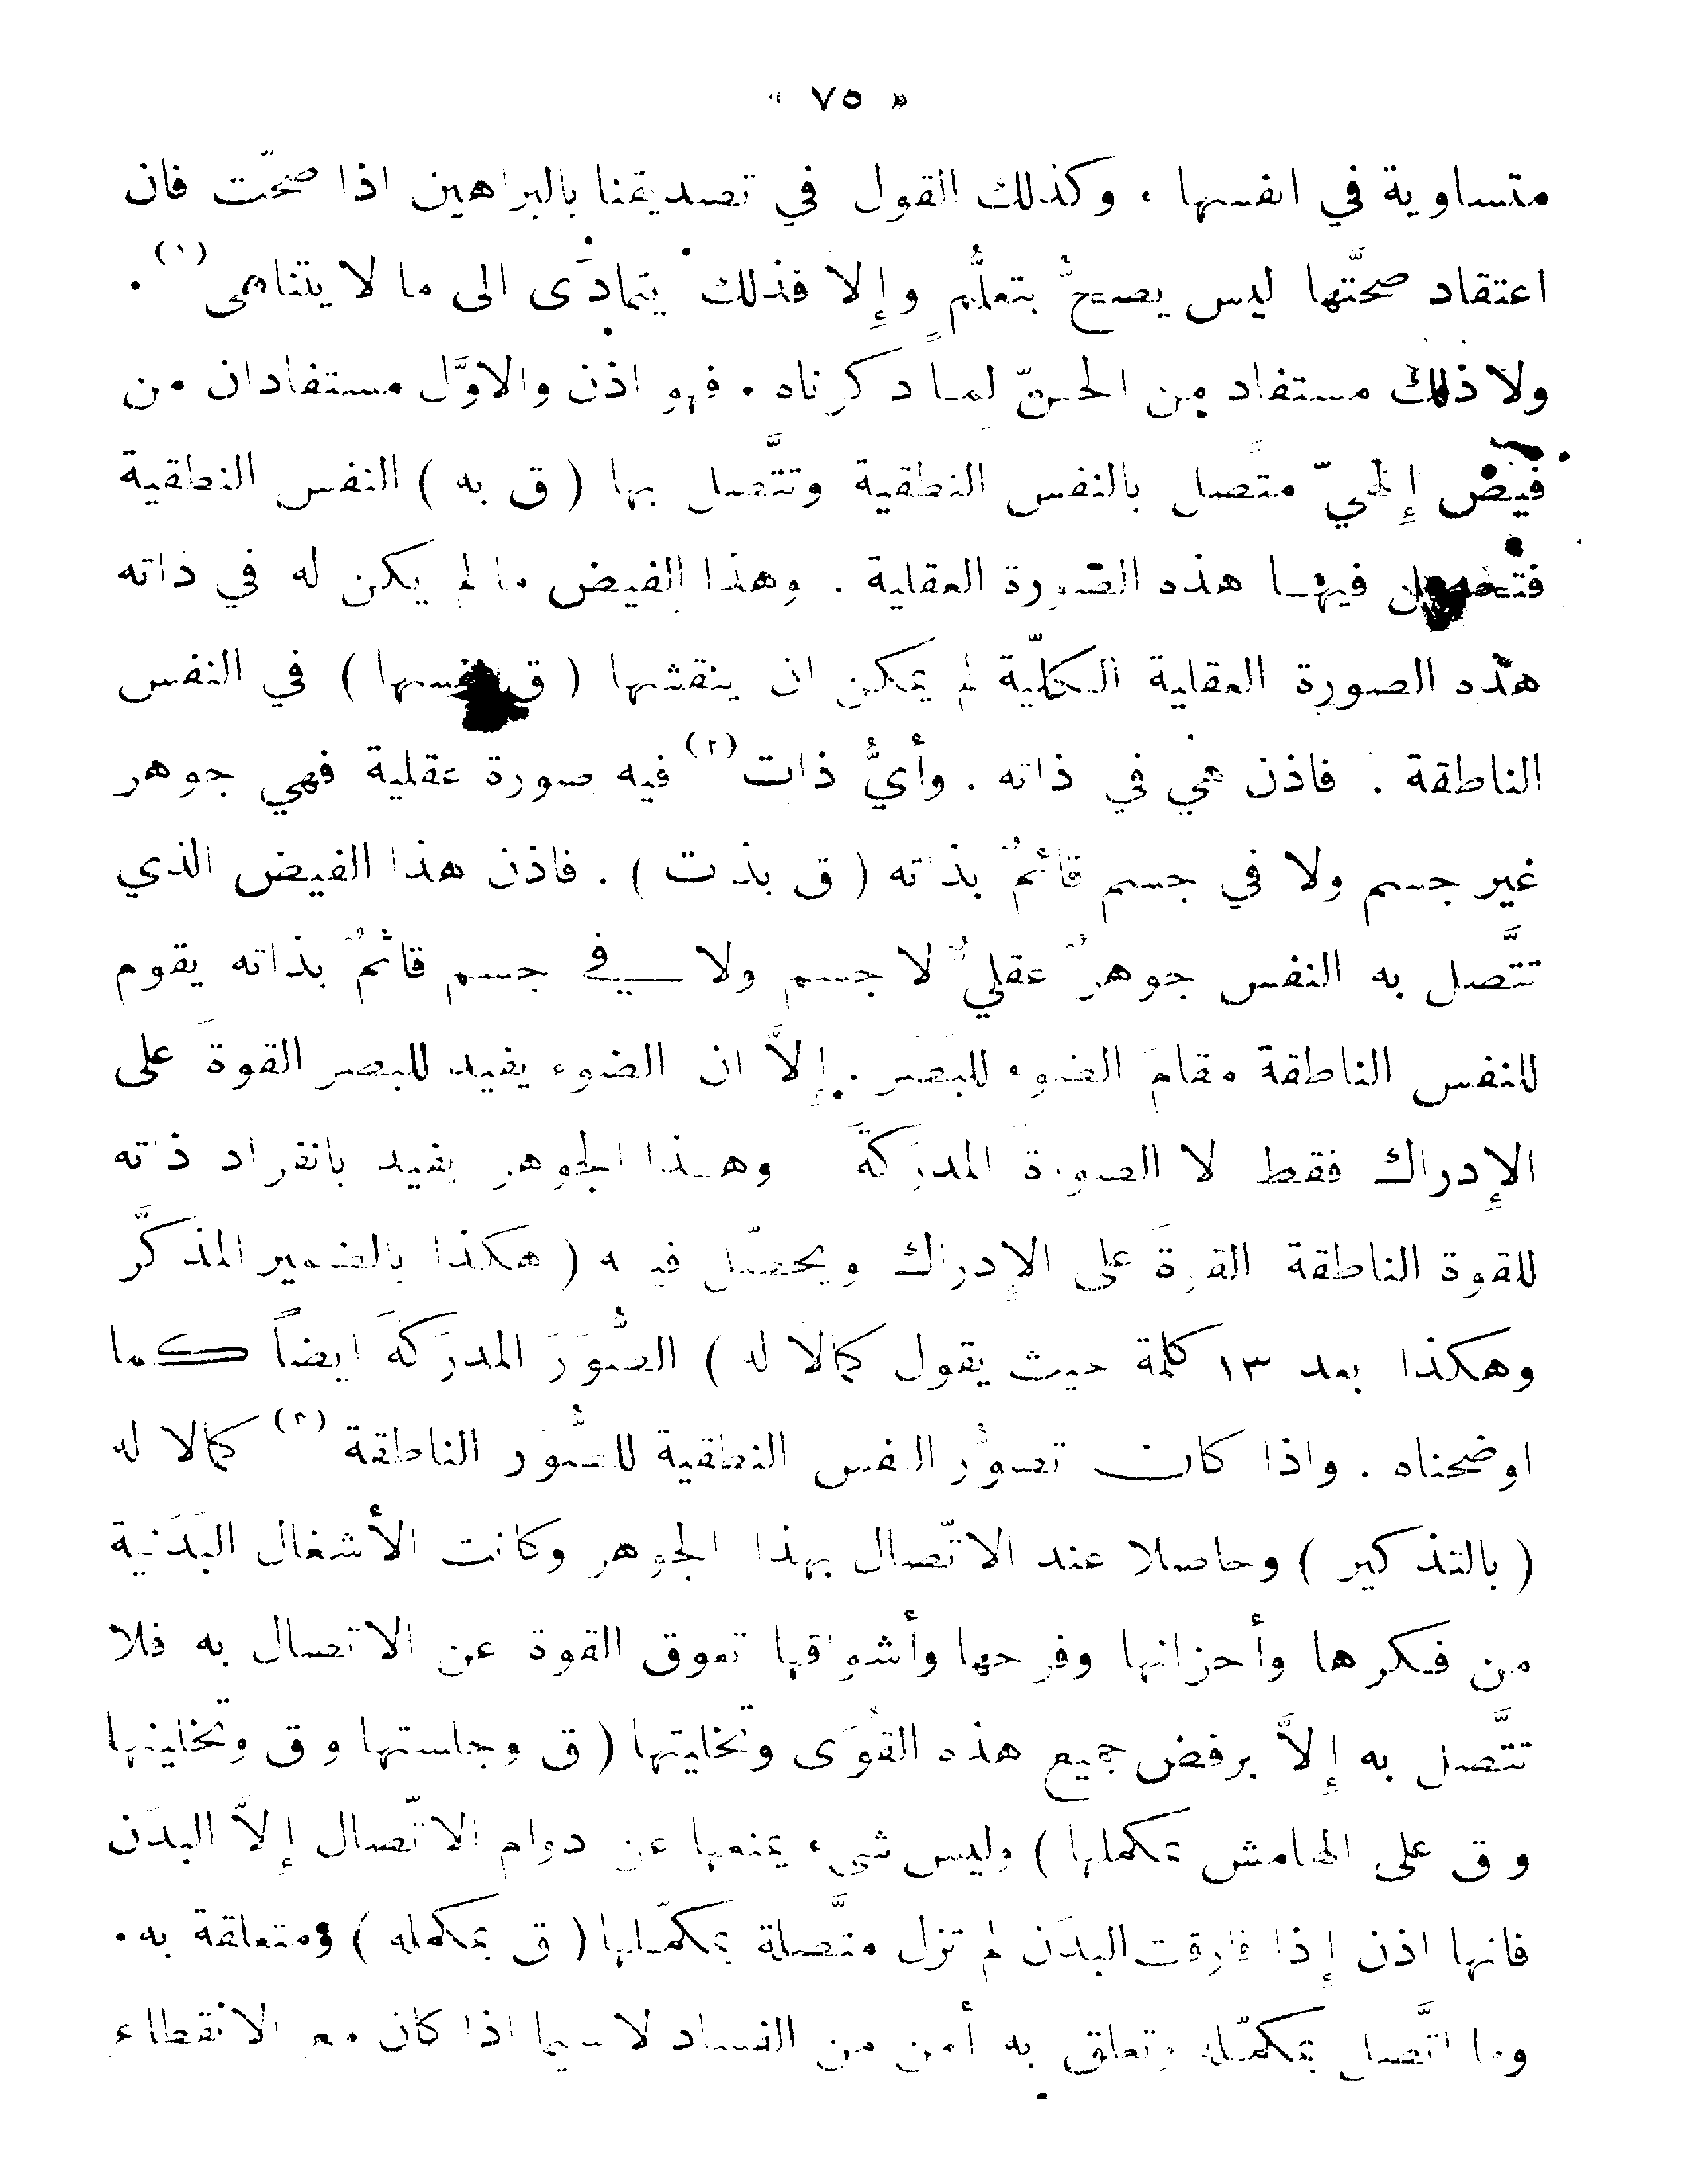 « ٧٥ »
متساوية في انفسها . وكذلك القول في تصديقنا بالبراهين اذا صحّت فان
اعتقاد صحَّتها ليس يصحُّ بتعلُّم وإلاَّ فذلك يتمادَى الى ما لا يتناهى (١) .
ولا ذلك مستفاد من الحسّ لما ذكرناه . فهو اذن والاوَّل مستفادان من
فيض إلهيّ متَّصل بالنفس النطقية وتتَّصل بها ( ق به ) النفس النطقية
فتحصل فيهـا هذه الصورة العقلية . وهذا الفيض ما لم يكن له في ذاته
هذه الصورة العقلية الكلّيّة لم يمكن ان ينقشها ( ق نفسها ) في النفس
الناطقة . فاذن هي في ذاته . وأيُّ ذات (٢) فيه صورة عقلية فهي جوهر
غير جسم ولا في جسم قائمٌ بذاته ( ق بذت ) . فاذن هذا الفيض الذي
تتَّصل به النفس جوهرٌ عقليٌّ لا جسم ولا في جسم قائمٌ بذاته يقوم
للنفس الناطقة مقامَ الضوء للبَصَر . إلاَّ ان الضوء يفيد للبصر القوةَ على
الإدراك فقط لا الصورةَ المدرَكةَ وهـذا الجوهر يفيد بانفراد ذاته
للقوة الناطقة القوةَ على الإدراك ويحصّل فيه ( هكذا بالضمير المذكَّر
وهكذا بعد ١٣ كلمة حيث يقول كمالا له ) الصُّوَرَ المدرَكةَ ايضاً كما
اوضحناه . واذا كان تصوُّر النفس النطقية للصُّوَر الناطقة (٣) كمالا له
( بالتذكير ) وحاصلا عند الاتّصال بهذا الجوهر وكانت الأشغال البَدَنية
من فكرها وأحزانها وفرحها وأشواقها تعوق القوة عن الاتصال به فلا
تتَّصل به إلاَّ برفض جميع هذه القُوَى وتخليتها ( ق وجلستها و ق وتخلينها
و ق على الهامش تمكملها ) وليس شيء يمنعها عن دوام الاتّصال إلاَّ البَدَن
فانها اذن إذا فارقت البدَن لم تزل متَّصلة بمكمّلها ( ق بمكمله ) ومتعلقة به .
وما اتَّصل بمكمّله وتعلق به أمن من الفساد لا سيما اذا كان مع الانقطاع